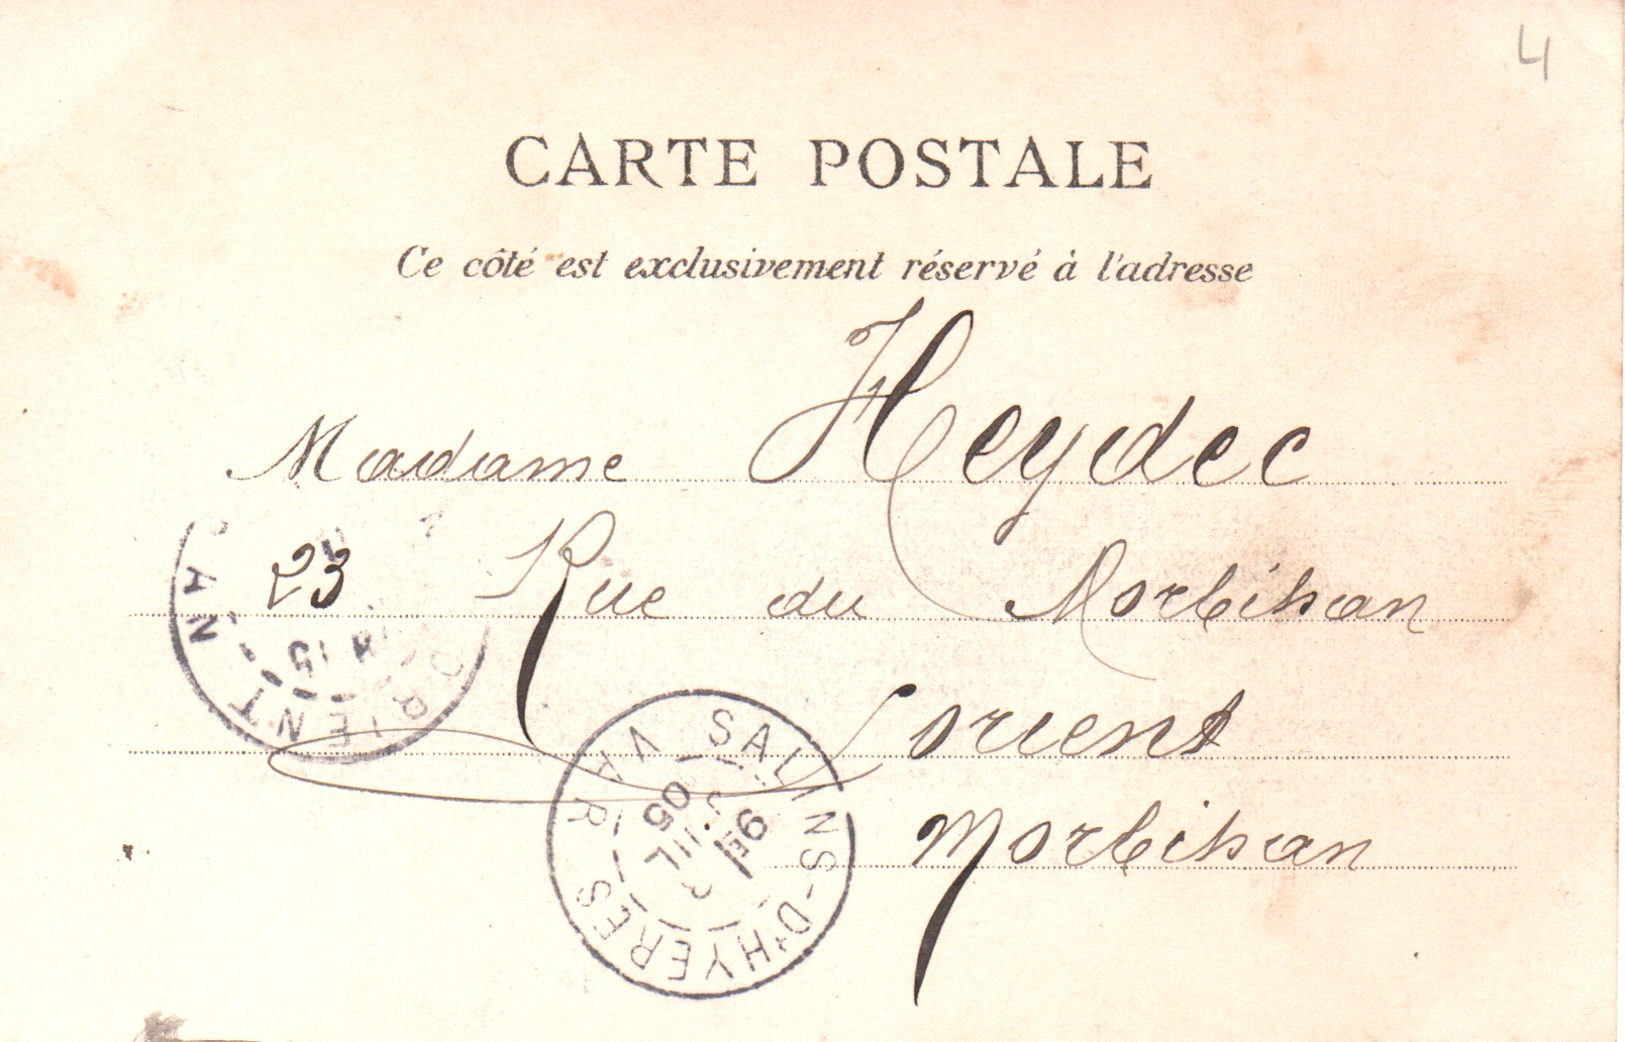 4
CARTE POSTALE
Ce côté est exclusivement réservé à l'adresse
Madame Heydec
23 Rue du Morbihan
Lorient
Morbihan
LORIENT
SALINS-D'HYÈRES
VAR
9E
JUIL
05